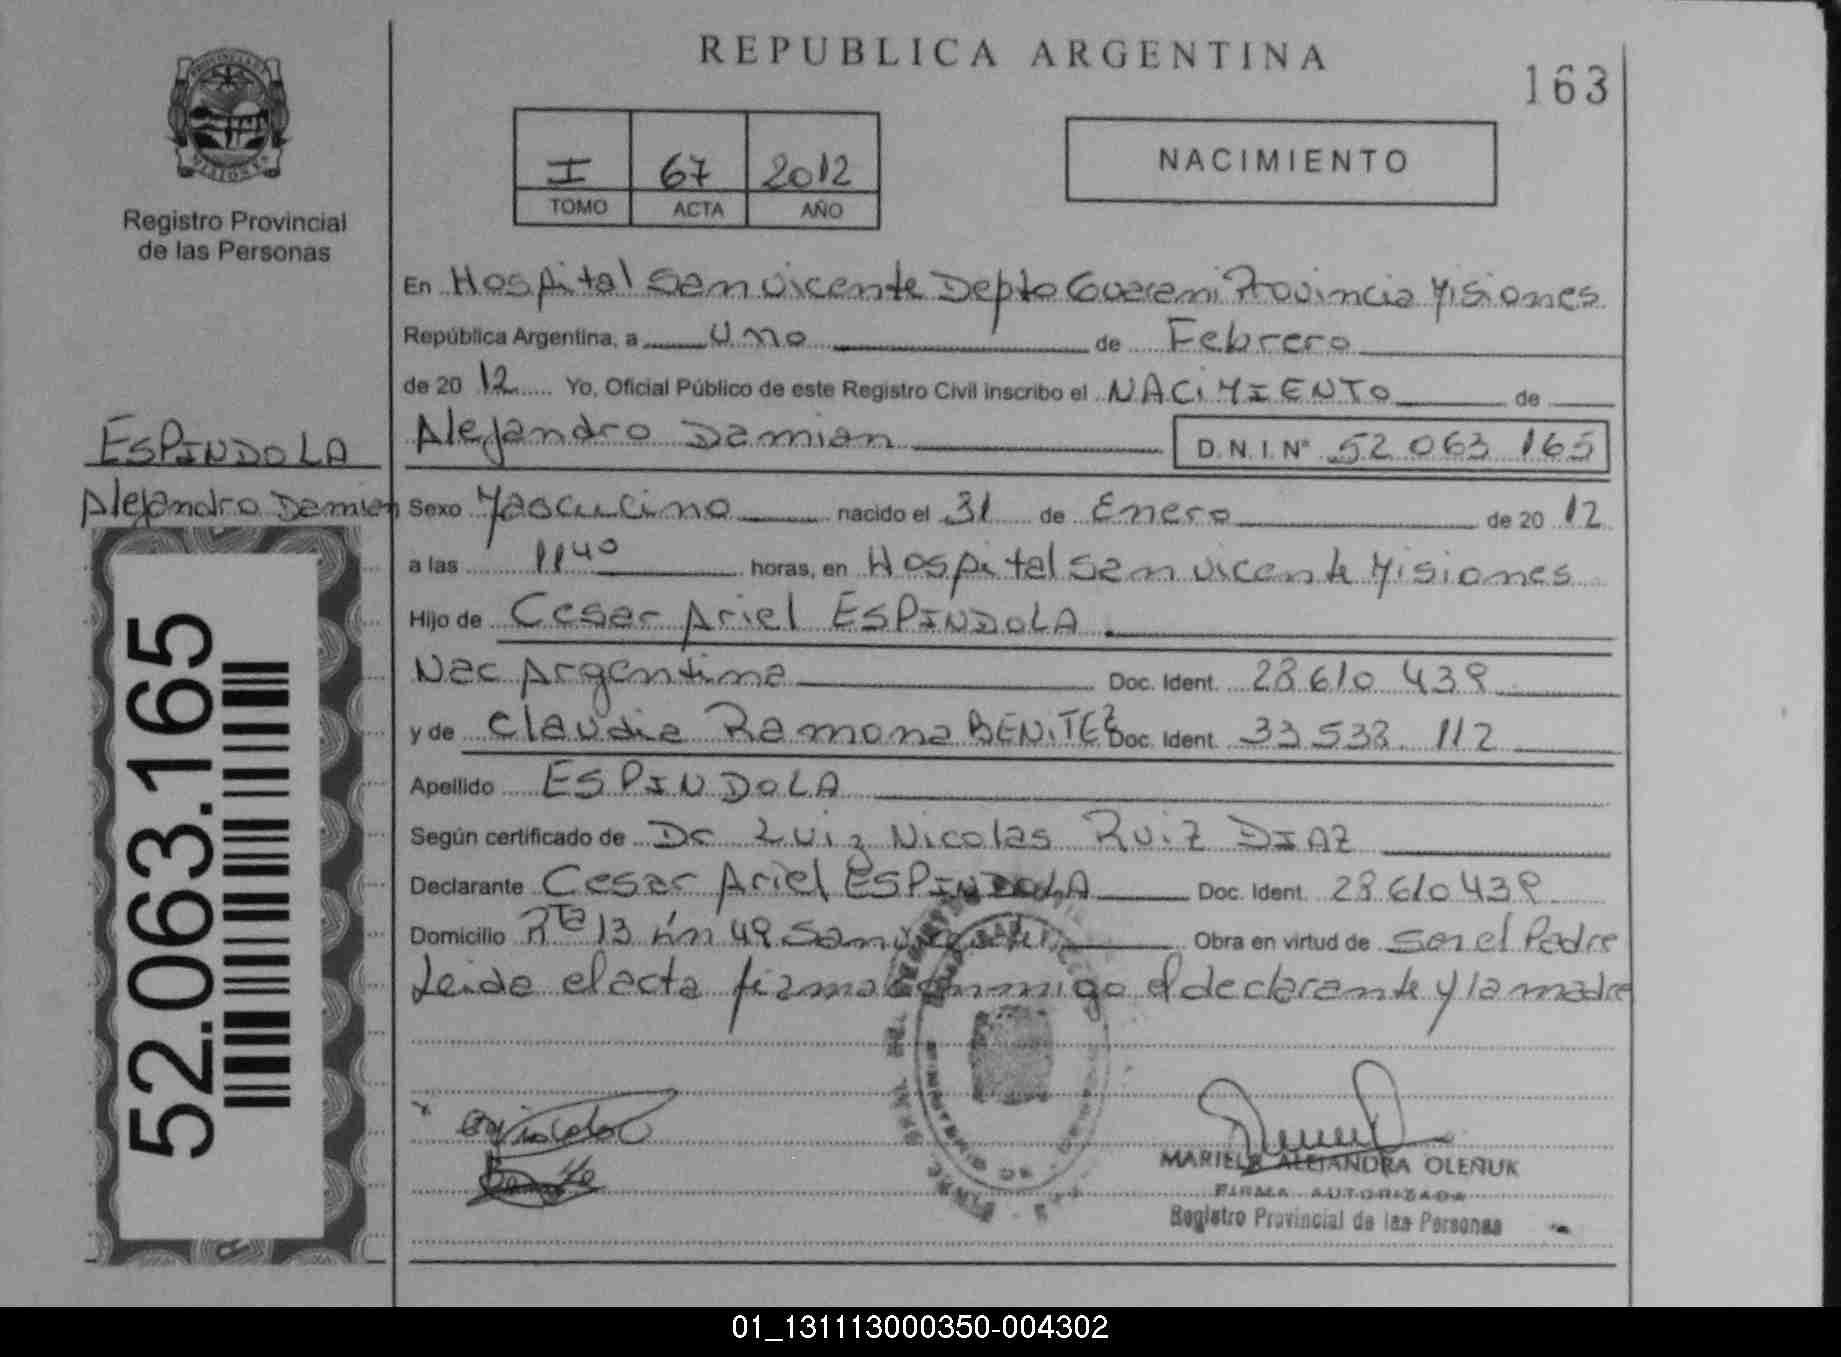 REPUBLICA ARGENTINA
163
I 67 2012
TOMO ACTA AÑO
NACIMIENTO
Registro Provincial
de las Personas
En Hospital San Vicente Depto Guarani Provincia Misiones
República Argentina, a Uno de Febrero
de 20 12 Yo, Oficial Público de este Registro Civil inscribo el NACIMIENTO de
Alejandro Damian D.N.I. Nº 52 063 165
ESPINDOLA
Alejandro Damian
Sexo Masculino nacido el 31 de Enero de 20 12
a las 11 40 horas, en Hospital San Vicente Misiones
Hijo de Cesar Ariel ESPINDOLA
Nac Argentina Doc. Ident. 28 610 439
y de Claudia Ramona BENITEZ Doc. Ident. 33 538 112
Apellido ESPINDOLA
Según certificado de Dr Luiz Nicolas Ruiz DIAZ
Declarante Cesar Ariel ESPINDOLA Doc. Ident. 28 610 439
Domicilio Rta 13 km 49 San Vicente Obra en virtud de ser el Padre
Leida el acta firma conmigo el declarante y la madre
52.063.165
MARIELA ALEJANDRA OLEÑUK
FIRMA AUTORIZADA
Registro Provincial de las Personas
01_131113000350-004302